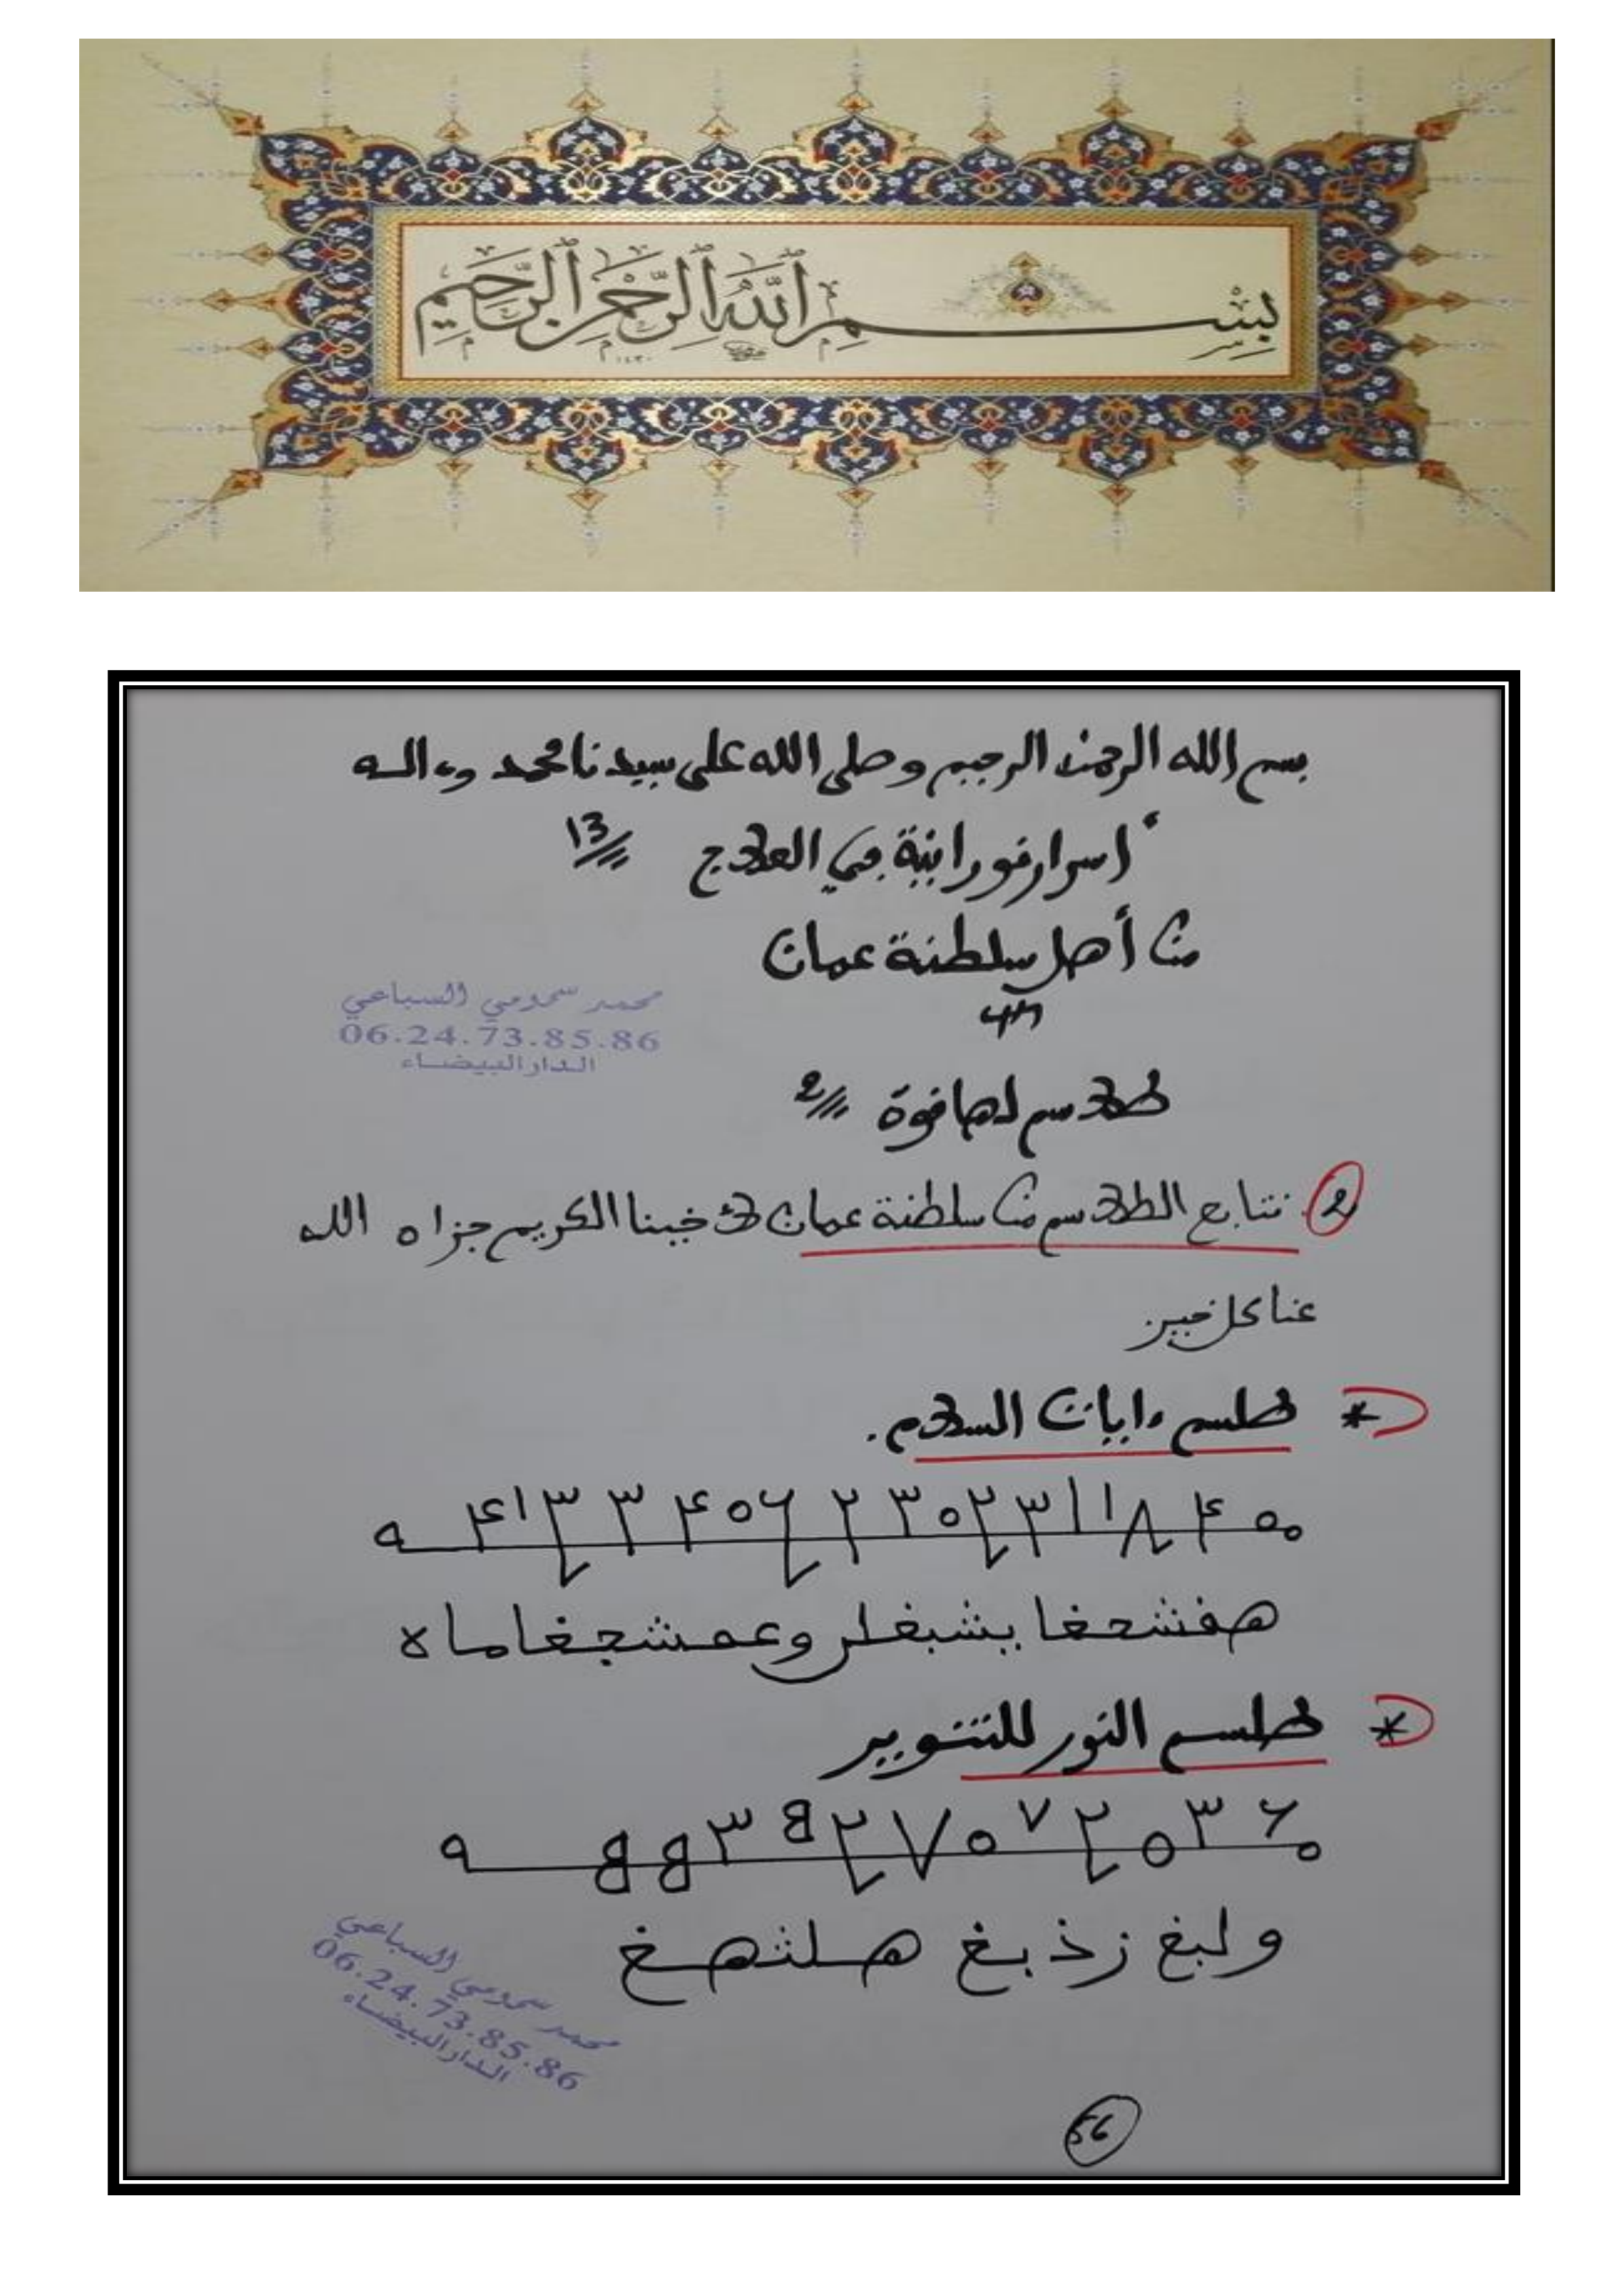 بِسْمِ ٱللَّهِ ٱلرَّحْمَٰنِ ٱلرَّحِيمِ
بسم الله الرحمن الرحيم وصلى الله على سيدنا محمد وءاله
أسرار نورانية في العلاج 13
من أهل سلطنة عمان
محمد سمومي السباعي
06.24.73.85.86
الدار البيضاء
طلاسم لها قوة 2
2 نتابع الطلاسم من سلطنة عمان لأخينا الكريم جزاه الله
عنا كل خير
* طلسم ءايات السلام.
* طلسم النور للتنوير
ولبغ زذبغ هلثهغ
محمد سمومي السباعي
06.24.73.85.86
الدار البيضاء
56